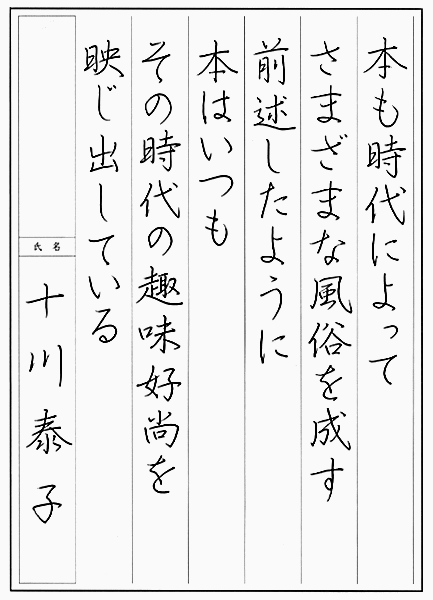 本も時代によって
さまざまな風俗を成す
前述したように
本はいつも
その時代の趣味好尚を
映じ出している
氏名
十川泰子